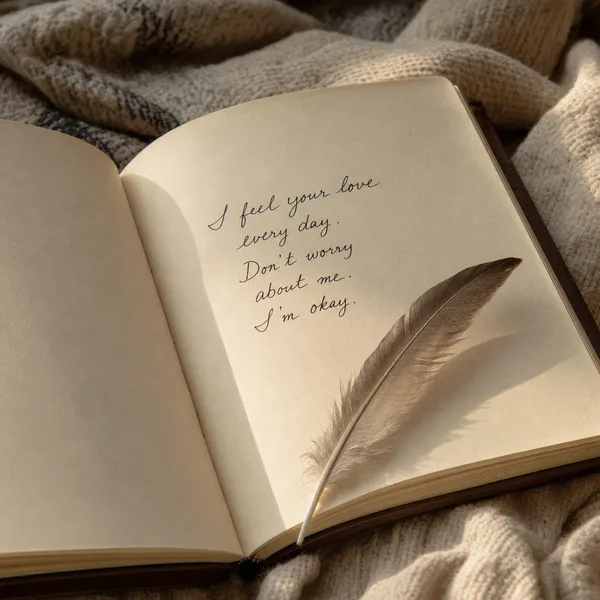 I feel your love
every day.
Don't worry
about me.
I'm okay.